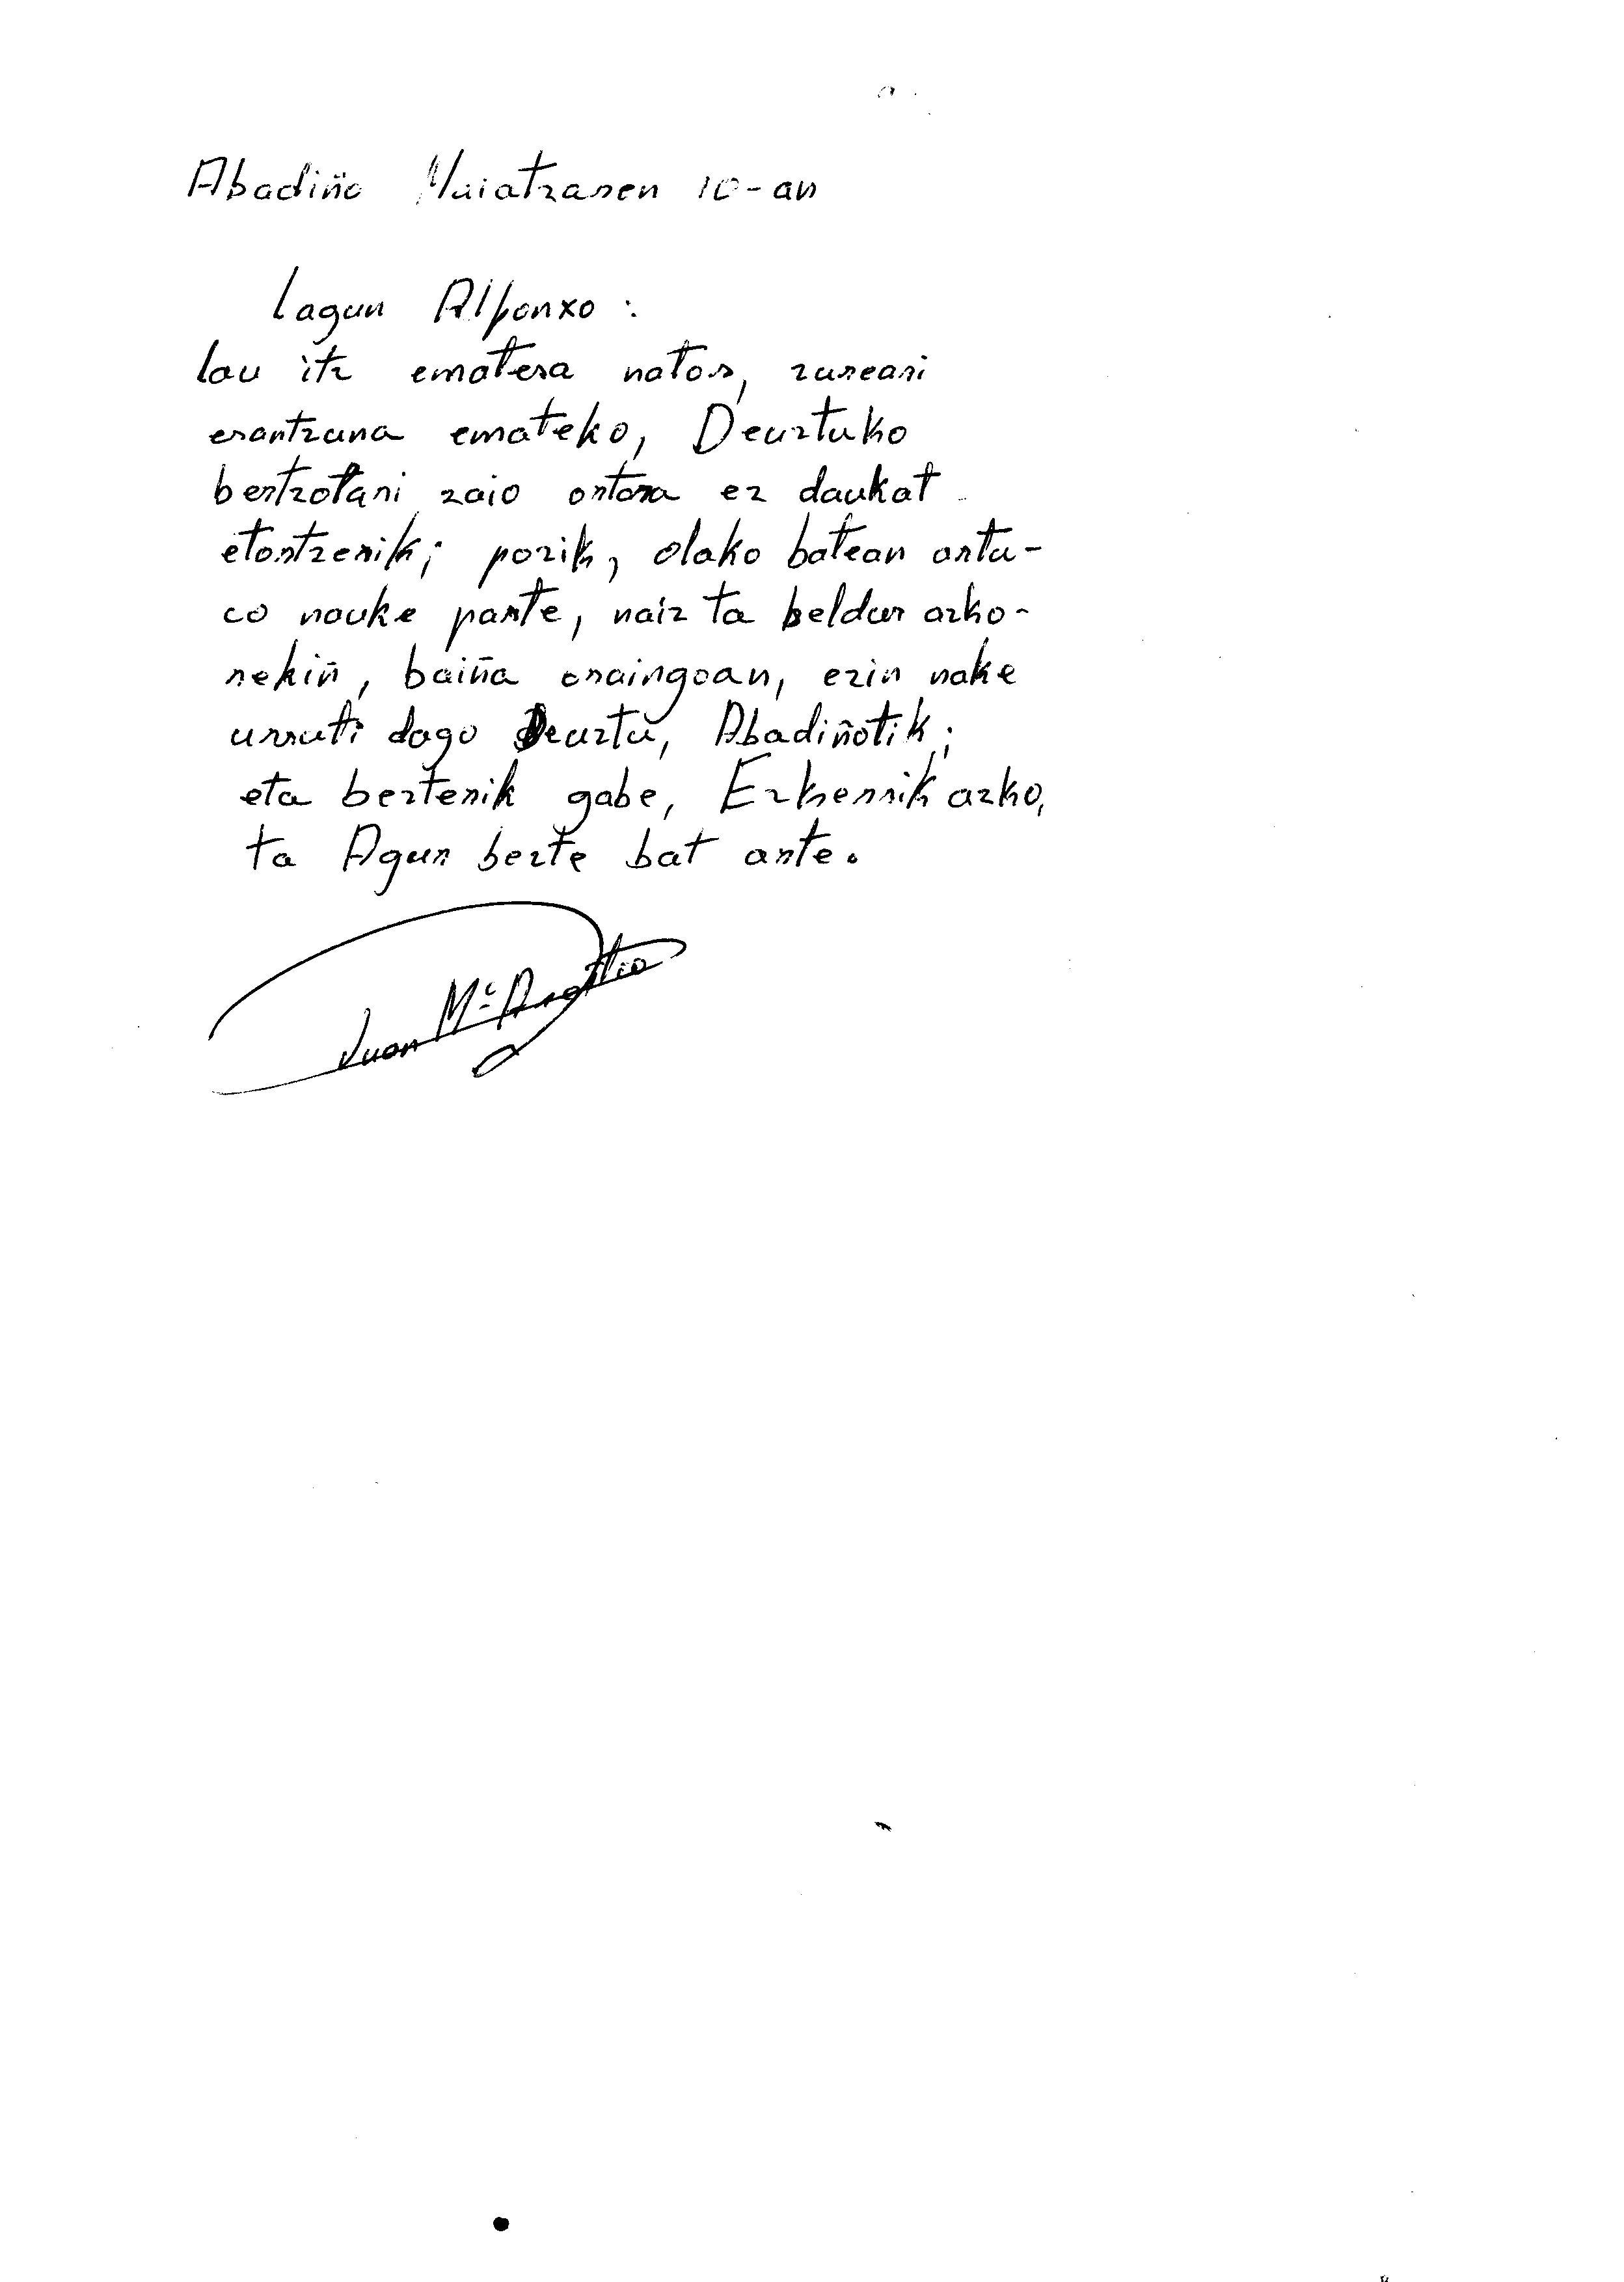 Abadiño Maiatzaren 10-an
Lagun Alfonxo :
lau itz ematera nator, zureari
erantzuna emateko, Deuztuko
bertzolari zaio ortara ez daukat
etortzerik; pozik, olako batean artu-
co nauke parte, naiz ta beldur azko-
rekiñ, baiña oraingoan, ezin nake
urruti dago Deuztu, Abadiñotik;
eta bezterik gabe, Ezkerrik azko,
ta Agur bezte bat arte.
Juan Mª